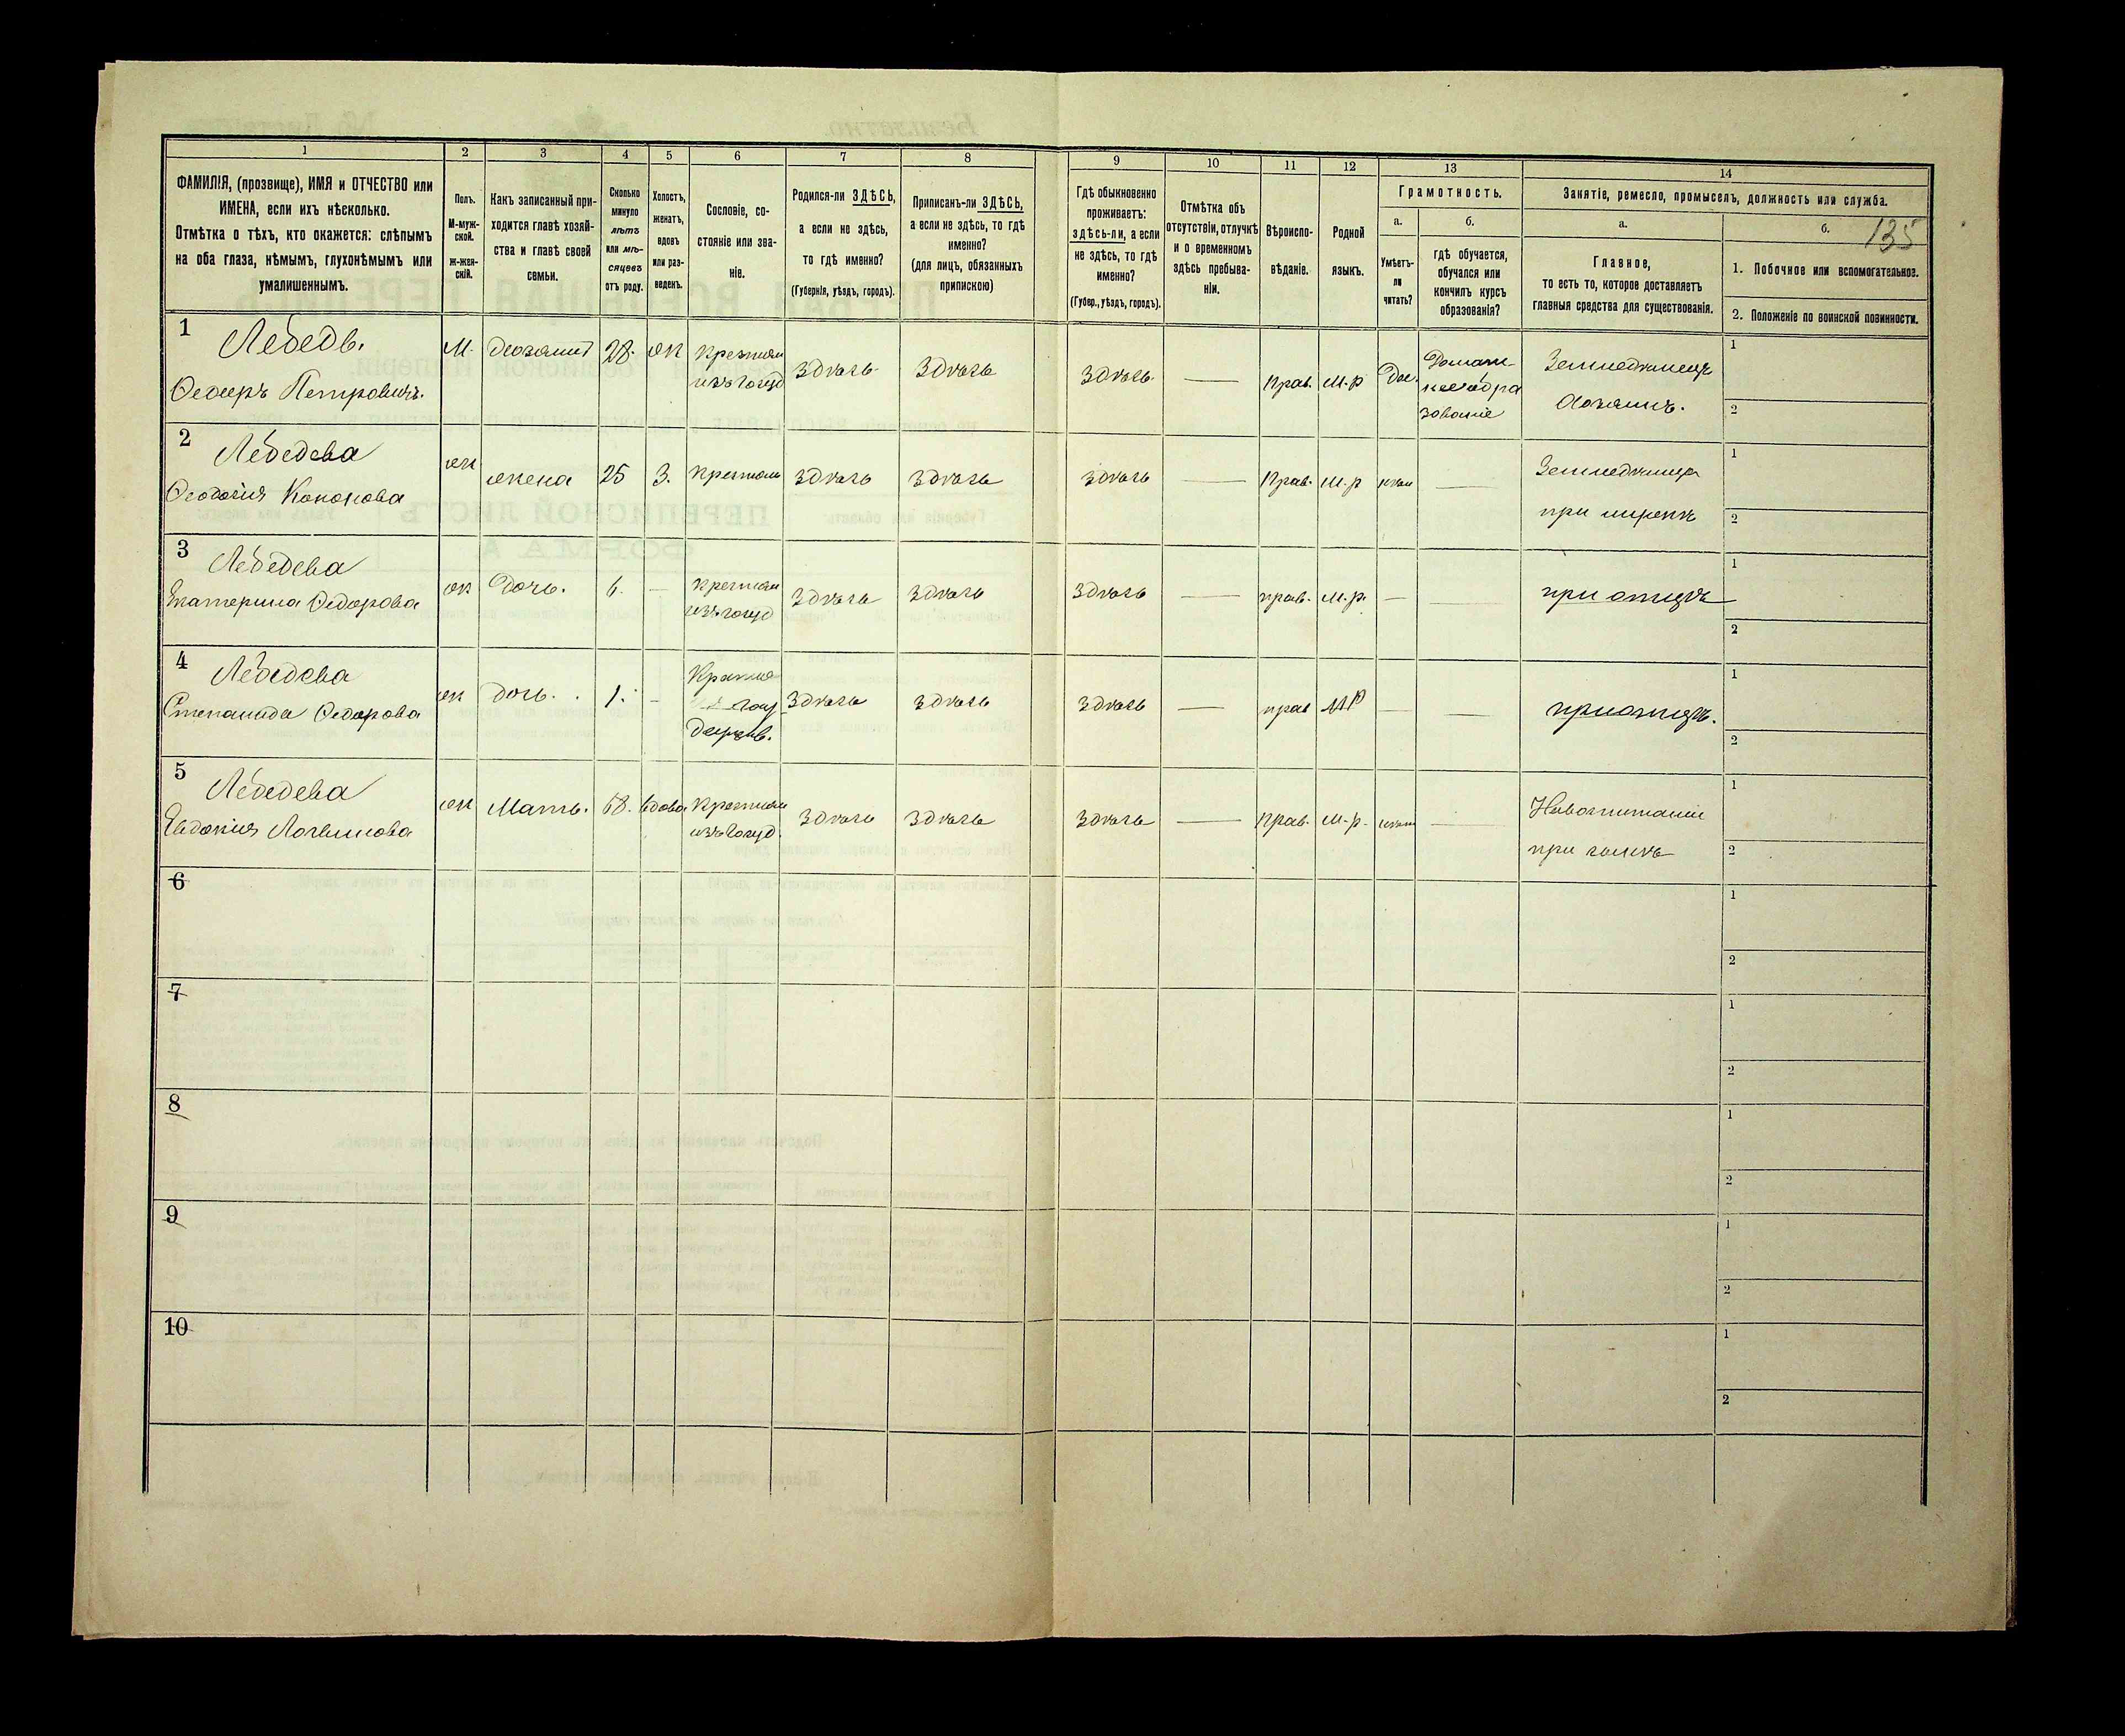 135
1
2
3
4
5
6
7
8
9
10
11
12
13
14
ФАМИЛІЯ, (прозвище), ИМЯ и ОТЧЕСТВО или
ИМЕНА, если ихъ нѣсколько.
Отмѣтка о тѣхъ, кто окажется: слѣпымъ
на оба глаза, нѣмымъ, глухонѣмымъ или
умалишеннымъ.
Полъ.
М-муж-
ской.
Ж-жен-
скій.
Какъ записанный при-
ходится главѣ хозяй-
ства и главѣ своей
семьи.
Сколько
минуло
лѣтъ
или мѣ-
сяцевъ
отъ роду.
Холостъ,
женатъ,
вдовъ
или раз-
веденъ.
Сословіе, со-
стояніе или зва-
ніе.
Родился-ли ЗДѢСЬ,
а если не здѣсь,
то гдѣ именно?
(Губернія, уѣздъ, городъ).
Приписанъ-ли ЗДѢСЬ,
а если не здѣсь, то гдѣ
именно?
(для лицъ, обязанныхъ
припискою)
Гдѣ обыкновенно
проживаетъ:
здѣсь-ли, а если
не здѣсь, то гдѣ
именно?
(Губер., уѣздъ, городъ).
Отмѣтка объ
отсутствіи, отлучкѣ
и о временномъ
здѣсь пребыва-
ніи.
Вѣроиспо-
вѣданіе.
Родной
языкъ.
Грамотность.
а.
Умѣетъ-
ли
читать?
б.
гдѣ обучается,
обучался или
кончилъ курсъ
образованія?
Занятіе, ремесло, промыселъ, должность или служба.
а.
Главное,
то есть то, которое доставляетъ
главныя средства для существованія.
б.
1. Побочное или вспомогательное.
2. Положеніе по воинской повинности.
1
Лебедь.
Федеръ Петровичъ.
М.
28.
жн
здѣсь
здѣсь
здѣсь
прав.
м.р
Земледѣлецъ
Хозяинъ.
1
2
2
Лебедева
Кононова
жн
жена
25
З.
здѣсь
здѣсь
здѣсь
Прав.
м.р
1
2
3
Лебедева
Екатерина Федорова
жн
дочь.
6.
здѣсь
здѣсь
здѣсь
прав.
м.р.
при отцѣ
1
2
4
Лебедева
Степанида Федорова
жн
дочь.
1.
здѣсь
здѣсь
здѣсь
прав
МР
при отцѣ.
1
2
5
Лебедева
Евдокия Логвинова
жн
Мать.
вдова
здѣсь
здѣсь
здѣсь
прав.
м.р.
при сынѣ
1
2
6
1
2
7
1
2
8
1
2
9
1
2
10
1
2